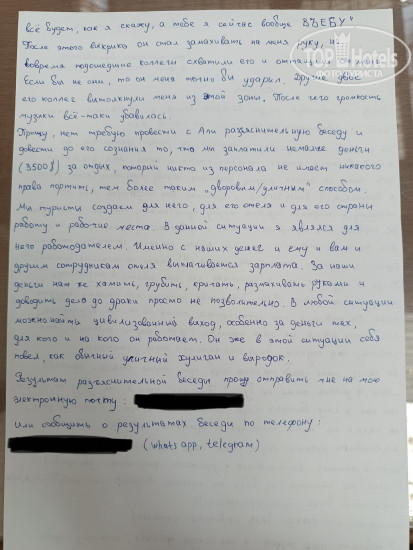 всё будем, как я скажу, а тебе я сейчас вообще ВЪЕБУ"
После этого выкрика он стал замахивать на меня руку, но
вовремя подошедшие коллеги схватили его и оттащили
Если бы не они, то он меня точно бы ударил. Другие двое
его коллег вытолкнули меня из этой зоны. После чего громкость
музыки всё-таки убавилась.
Прошу, нет требую провести с Али разъяснительную беседу и
довести до его сознания то, что мы заплатили немалые деньги
(3500$) за отдых, который никто из персонала не имеет никакого
права портить, тем более таким „дворовым/уличным" способом.
Мы туристы создаем для него, для его отеля и для его страны
работу и рабочие места. В данной ситуации я являлся для
него работодателем. Именно с наших денег и ему и вам и
другим сотрудникам отеля выплачивается зарплата. За наши
деньги нам же хамить, грубить, кричать, размахивать руками и
доводить дело до драки просто не позволительно. В любой ситуации
можно найти цивилизованный выход, особенно за деньги тех,
для кого и на кого он работает. Он же в этой ситуации себя
повел, как обычный уличный хулиган и выродок.
Результат разъяснительной беседы прошу отправить мне на мою
электронную почту:
Или сообщить о результатах беседы по телефону:
(whats app, telegram)
TopHotels
ФОТО ТУРИСТА